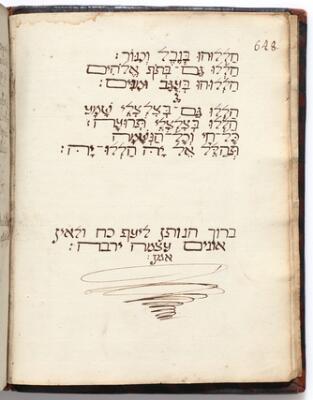 648
הַלְלוּהוּ בְּנֵבֶל וְכִנּוֹר:
הַלְלוּ גַם־בְּתֹף אֱלֹהִים
הַלְלוּהוּ בְּעֻגָב וּמִנִּים:
הַלְלוּ גַם־בְּצֶלְצְלֵי שָׁמַע
הַלְלוּ בְּצֶלְצְלֵי תְרוּעָה:
כָּל־חַי וְכָל־הַנְּשָׁמָה
תְּהַלֵּל אֶל יָהּ הַלְלוּ־יָהּ:
ברוך הנותן ליעף כח ולאין
אונים עצמה ירבה:
אמן: